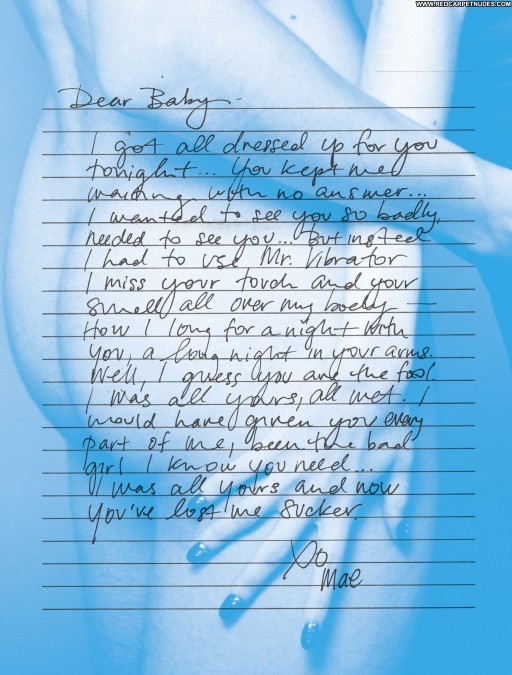 WWW.REDCARPETNUDES.COM
Dear Baby -
I got all dressed up for you
tonight... You kept me
waiting with no answer...
I wanted to see you so badly,
needed to see you... But insteel
I had to use Mr. Vibrator
I miss your touch and your
smell all over my body —
How I long for a night with
you, a long night in your arms.
Well, I guess you are the fool.
I was all yours, all wet. I
would have given you every
part of me, been the bad
girl I know you need...
I was all yours and now
you've lost me sucker.
XO
Mae